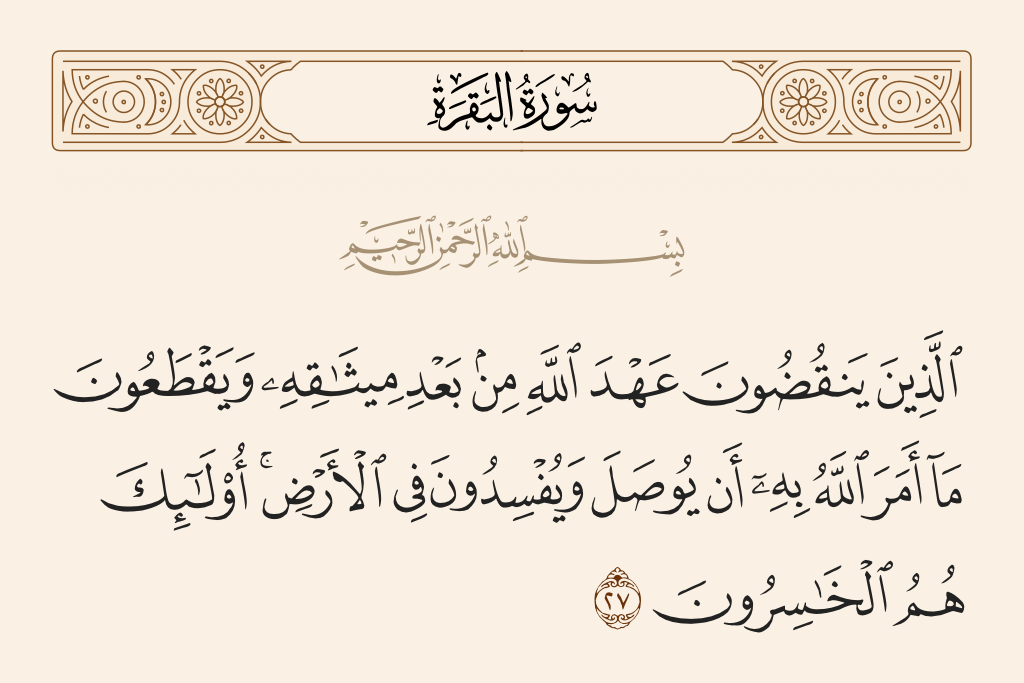 سُورَةُ البَقَرَةِ
بِسْمِ ٱللَّهِ ٱلرَّحْمَٰنِ ٱلرَّحِيمِ
ٱلَّذِينَ يَنقُضُونَ عَهْدَ ٱللَّهِ مِنۢ بَعْدِ مِيثَٰقِهِۦ وَيَقْطَعُونَ
مَآ أَمَرَ ٱللَّهُ بِهِۦٓ أَن يُوصَلَ وَيُفْسِدُونَ فِى ٱلْأَرْضِ ۚ أُو۟لَٰٓئِكَ
هُمُ ٱلْخَٰسِرُونَ ٢٧